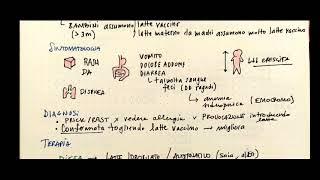 BAMBINI assumono latte vaccino
(>3m)
latte materno da madri assumono molto latte vaccino
SINTOMATOLOGIA
RASH
DA
VOMITO
DOLORE ADDOME
DIARREA
↳ talvolta sangue
feci (DD Ragadi)
DISPNEA
↳ anemia
sideropenica (EMOCROMO)
CRESCITA
DIAGNOSI
• PRICK/RAST x vedere allergia
PROVOCAZIONE introducendo
latte
• Confermata togliendo latte vaccino → migliora
TERAPIA
LATTE IDROLISATO
(soia,